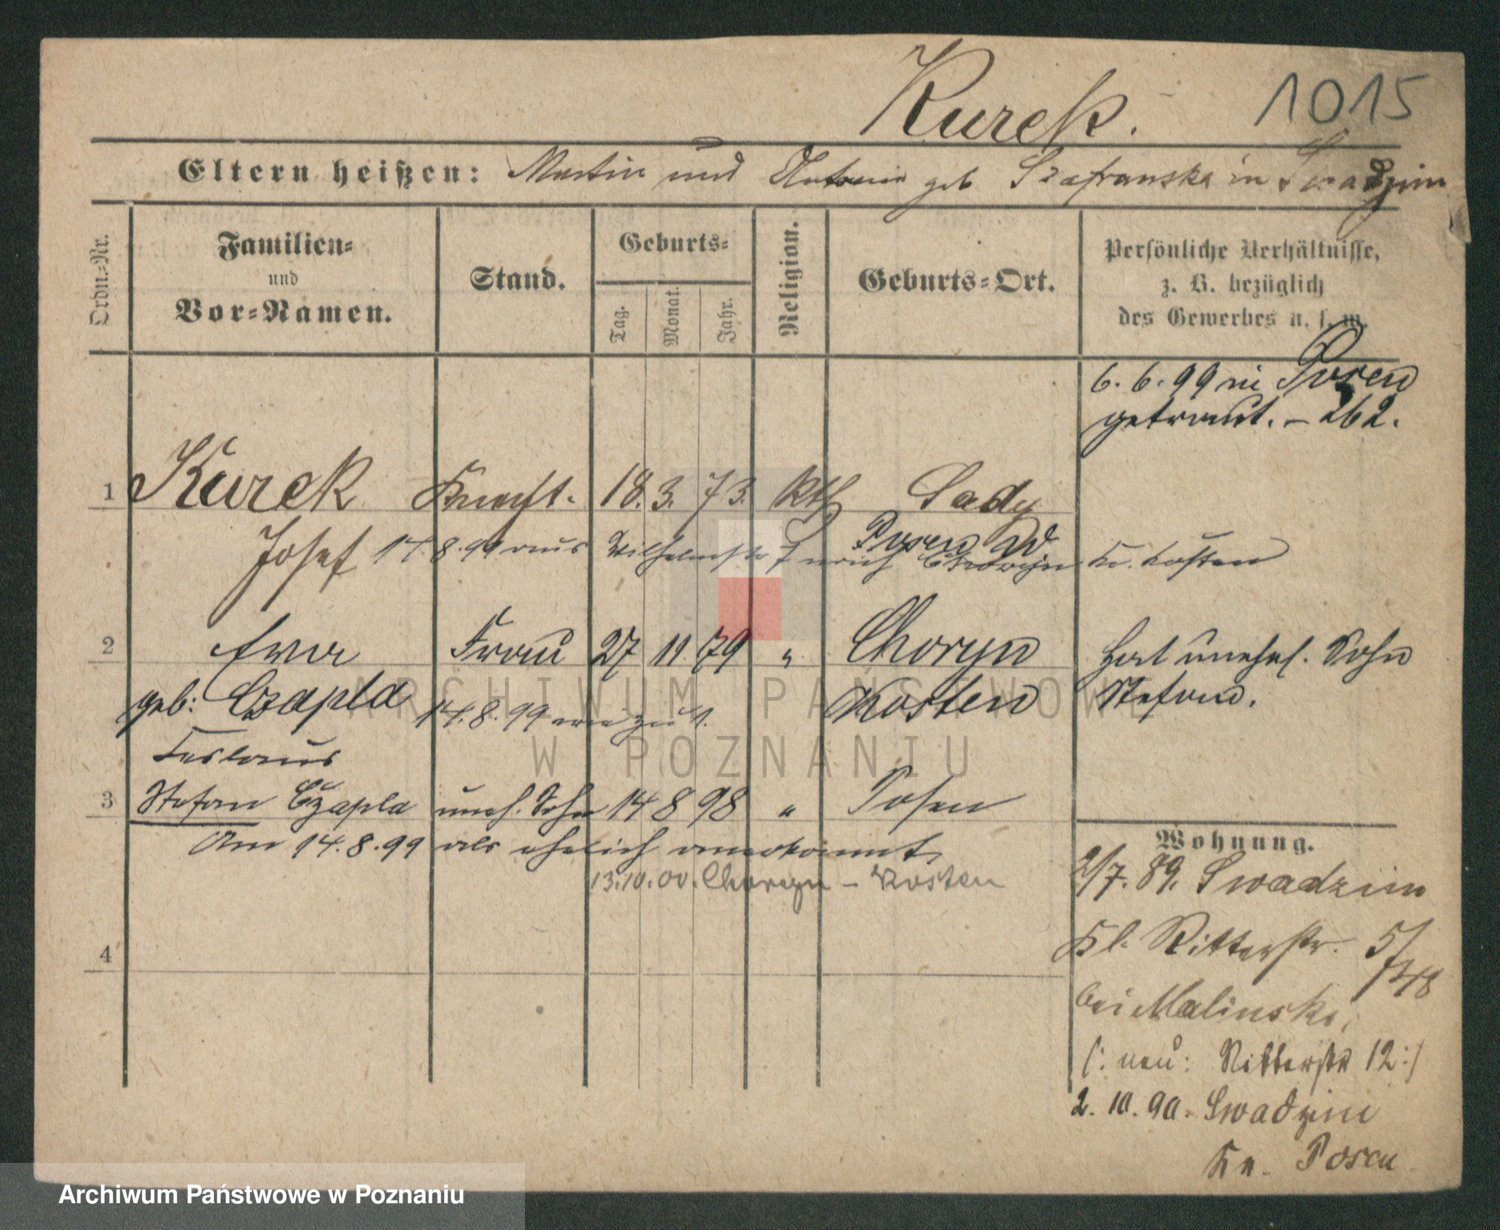 Kurek. 1015
Eltern heißen: Martin und Antonie geb Szafranska in Swadzim
Ordn.-Nr.
Familien-
und
Vor-Namen.
Stand.
Geburts-
Tag.
Monat.
Jahr.
Religion.
Geburts-Ort.
Persönliche Verhältnisse,
z. B. bezüglich
des Gewerbes u. s. w.
6. 6. 99 in Posen
getraut. - 262.
1 Kurek Knecht. 18. 3. 73. kth Sady
Posen W
Josef 14. 8. 99 aus Wilhelmstr 7 nach Choryn Kr. Kosten
2 Eva Frau 27 11 79 " Choryn
geb: Czapla 14.8.99 Kosten
Hat unehel. Sohn
Stefan.
3 Stefan Czapla uneh. Sohn 14 8 98 " Posen
Am 14.8.99 als ehelich anerkannt.
13.10.00. Choryn - Kosten
4
Wohnung.
2/7. 89. Swadzim
Kl. Ritterstr. 5/
bei Malinski,
(: neu: Ritterstr 12:)
2. 10. 90. Swadzim
Kr. Posen
ARCHIWUM PAŃSTWOWE
W POZNANIU
Archiwum Państwowe w Poznaniu